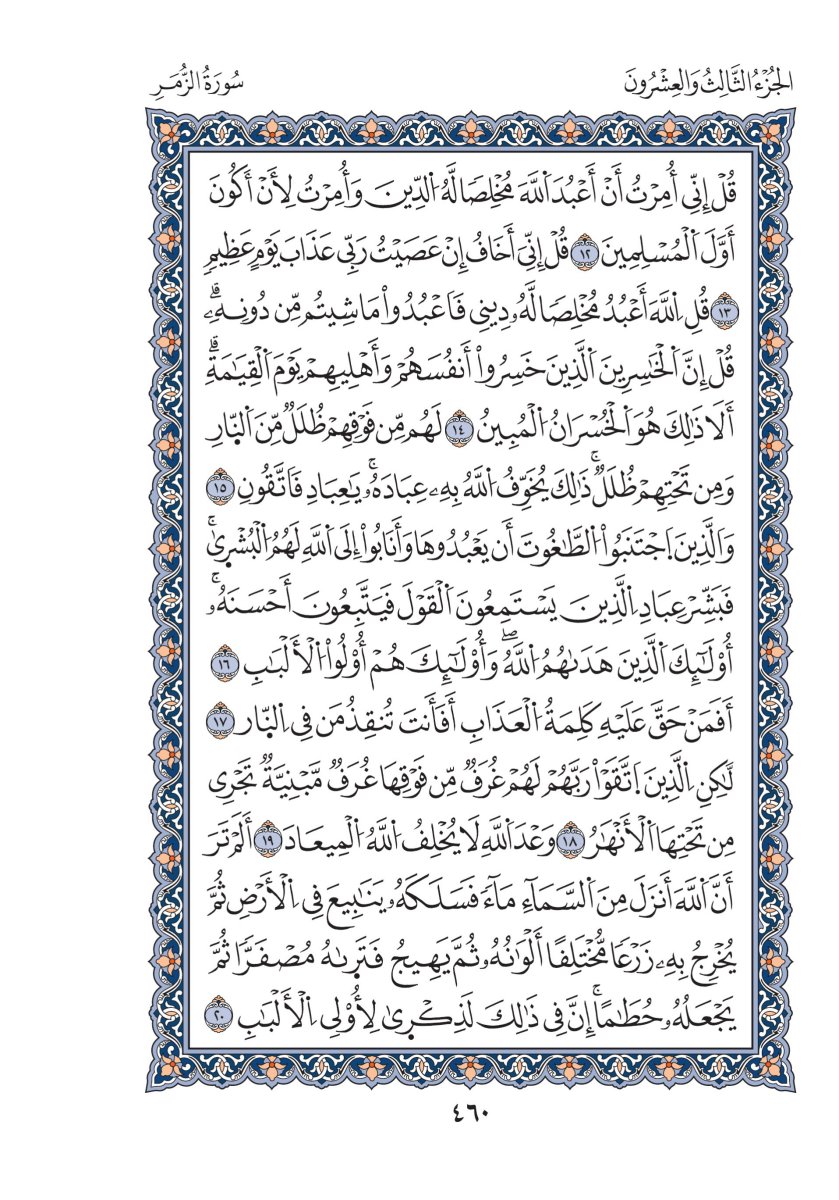 الجُزْءُ الثَّالِثُ وَالعِشْرُونَ
سُورَةُ الزُّمَرِ
قُلْ إِنِّي أُمِرْتُ أَنْ أَعْبُدَ اَ۬للَّهَ مُخْلِصاٗ لَّهُ اُ۬لدِّينَ وَأُمِرْتُ لِأَنْ أَكُونَ
أَوَّلَ اَ۬لْمُسْلِمِينَ ١٢ قُلْ إِنِّيَ أَخَافُ إِنْ عَصَيْتُ رَبِّي عَذَابَ يَوْمٍ عَظِيمٖ
١٣ قُلِ اِ۬للَّهَ أَعْبُدُ مُخْلِصاٗ لَّهُۥ دِينِي فَاعْبُدُواْ مَا شِيتُم مِّن دُونِهِۦۗ
قُلْ إِنَّ اَ۬لْخَٰسِرِينَ اَ۬لَّذِينَ خَسِرُواْ أَنفُسَهُمْ وَأَهْلِيهِمْ يَوْمَ اَ۬لْقِيَٰمَةِۗ
أَلَا ذَٰلِكَ هُوَ اَ۬لْخُسْرَانُ اُ۬لْمُبِينُ ١٤ لَهُم مِّن فَوْقِهِمْ ظُلَلٞ مِّنَ اَ۬لنّ۪ارِ
وَمِن تَحْتِهِمْ ظُلَلٞۚ ذَٰلِكَ يُخَوِّفُ اُ۬للَّهُ بِهِۦ عِبَادَهُۥۚ يَٰعِبَادِ فَاتَّقُونِ ١٥
وَالَّذِينَ اَ۪جْتَنَبُواْ اُ۬لطَّٰغُوتَ أَن يَعْبُدُوهَا وَأَنَابُواْ إِلَى اَ۬للَّهِ لَهُمُ اُ۬لْبُشْر۪ىٰۚ
فَبَشِّرْ عِبَادِ اِ۬لَّذِينَ يَسْتَمِعُونَ اَ۬لْقَوْلَ فَيَتَّبِعُونَ أَحْسَنَهُۥۚ
أُوْلَٰٓئِكَ اَ۬لَّذِينَ هَد۪ىٰهُمُ اُ۬للَّهُۖ وَأُوْلَٰٓئِكَ هُمْ أُوْلُواْ اُ۬لْأَلْبَٰبِ ١٦
أَفَمَنْ حَقَّ عَلَيْهِ كَلِمَةُ اُ۬لْعَذَابِ أَفَأَنتَ تُنقِذُ مَن فِي اِ۬لنّ۪ارِ ١٧
لَٰكِنِ اِ۬لَّذِينَ اَ۪تَّقَوْاْ رَبَّهُمْ لَهُمْ غُرَفٞ مِّن فَوْقِهَا غُرَفٞ مَّبْنِيَّةٞ تَجْرِي
مِن تَحْتِهَا اَ۬لْأَنْهَٰرُ ١٨ وَعْدَ اَ۬للَّهِ لَا يُخْلِفُ اُ۬للَّهُ اُ۬لْمِيعَادَ ١٩ أَلَمْ تَرَ
أَنَّ اَ۬للَّهَ أَنزَلَ مِنَ اَ۬لسَّمَآءِ مَآءٗ فَسَلَكَهُۥ يَنَٰبِيعَ فِي اِ۬لْأَرْضِ ثُمَّ
يُخْرِجُ بِهِۦ زَرْعاٗ مُّخْتَلِفاً أَلْوَٰنُهُۥ ثُمَّ يَهِيجُ فَتَر۪ىٰهُ مُصْفَرّاٗ ثُمَّ
يَجْعَلُهُۥ حُطَٰماًۚ إِنَّ فِي ذَٰلِكَ لَذِكْر۪ىٰ لِأُوْلِي اِ۬لْأَلْبَٰبِ ٢٠
٤٦٠